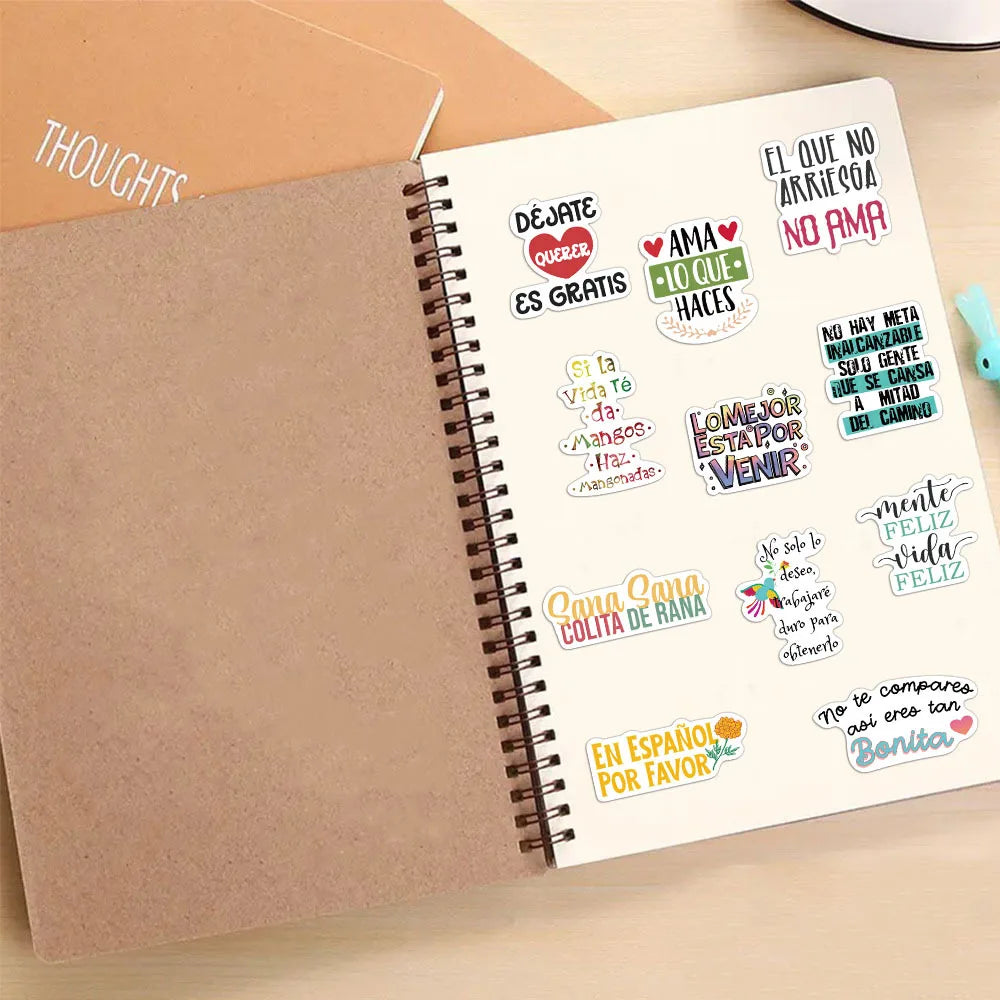 THOUGHTS
DÉJATE
QUERER
ES GRATIS
AMA
LO QUE
HACES
EL QUE NO
ARRIESGA
NO AMA
Si La
Vida Té
da
Mangos
Haz
Mangonadas
LO MEJOR
ESTA POR
VENIR
NO HAY META
INALCANZABLE
SOLO GENTE
QUE SE CANSA
A MITAD
DEL CAMINO
mente
FELIZ
vida
FELIZ
Sana Sana
COLITA DE RANA
No solo lo
deseo,
trabajaré
duro para
obtenerlo
EN ESPAÑOL
POR FAVOR
No te compares
así eres tan
Bonita